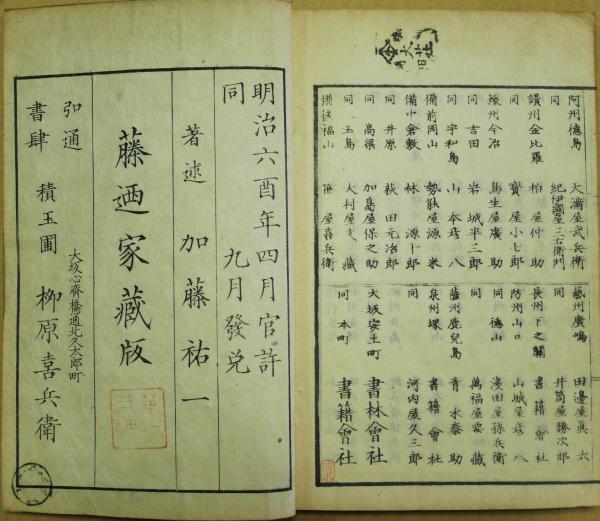 阿州徳島 天満屋武兵衛
同 紀伊國屋三右衛門
讃州金比羅 柏屋仲助
同 寳屋小七郎
豫州今治 鳥生屋廣助
同 吉田 岩城半三郎
同 宇和島 山本彦八
備前岡山 勢能屋源米
備中倉敷 林源十郎
同 井原 荻田元治郎
同 高梁 加島屋保之助
同 玉島 大村屋文藏
備後福山 屋喜兵衛
藝州廣嶋 田邊屋眞六
同 井筒屋勝次郎
長州下之關 書籍會社
防州山口 山城屋彦八
同 徳山 淺田屋孫兵衛
同 萬福屋要藏
薩州鹿兒島 青木泰助
泉州堺 書籍會社
同 河内屋久三郎
大坂安土町 書林會社
同 本町 書籍會社
明治六酉年四月官許
同 九月發兌
著述 加藤祐一
藤迺家藏版
弘通書肆 大坂心齋橋通北久太郎町
積玉圃 柳原喜兵衛